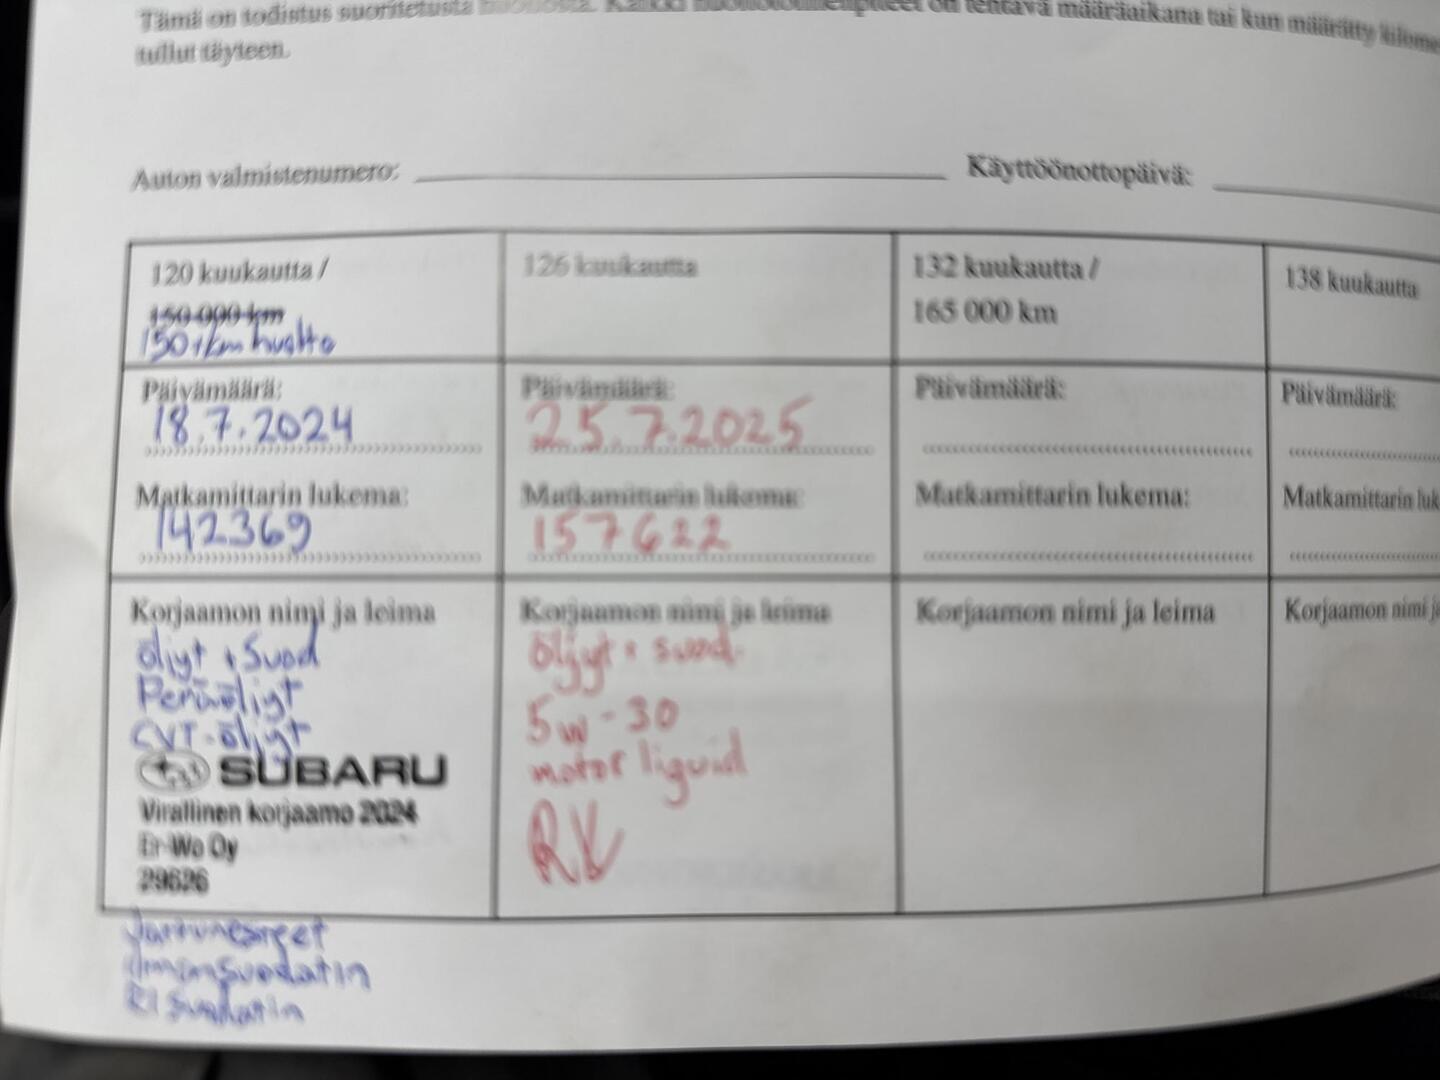 Tämä on todistus suoritetusta huollosta. Kaikki huoltotoimenpiteet on tehtävä määräaikana tai kun määrätty
tullut täyteen.
Auton valmistenumero: Käyttöönottopäivä:
120 kuukautta /
150 000 km
150 tkm huolto
Päivämäärä:
18.7.2024
Matkamittarin lukema:
142369
Korjaamon nimi ja leima
öljyt + suod
Peräöljyt
CVT-öljyt
SUBARU
Virallinen korjaamo 2024
Er-Wo Oy
29626
Jarrunesteet
ilmansuodatin
RI suodatin
126 kuukautta
Päivämäärä:
25.7.2025
Matkamittarin lukema:
157622
Korjaamon nimi ja leima
öljyt + suod.
5w-30
motor liquid
RV
132 kuukautta /
165 000 km
Päivämäärä:
Matkamittarin lukema:
Korjaamon nimi ja leima
138 kuukautta
Päivämäärä:
Matkamittarin
Korjaamon nimi